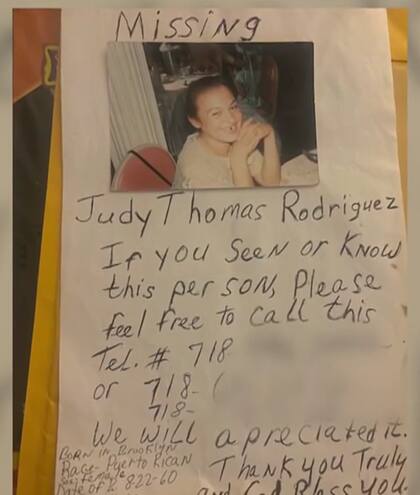 Missing
Judy Thomas Rodriguez
If you Seen or Know
this person, Please
feel free to call this
Tel. # 718
or 718- (
718-
We will apreciated it.
Born in Brooklyn
Race- Puerto Rican
Sex, Female
Date of 8-22-60
Thank you Truly
and God Bless you